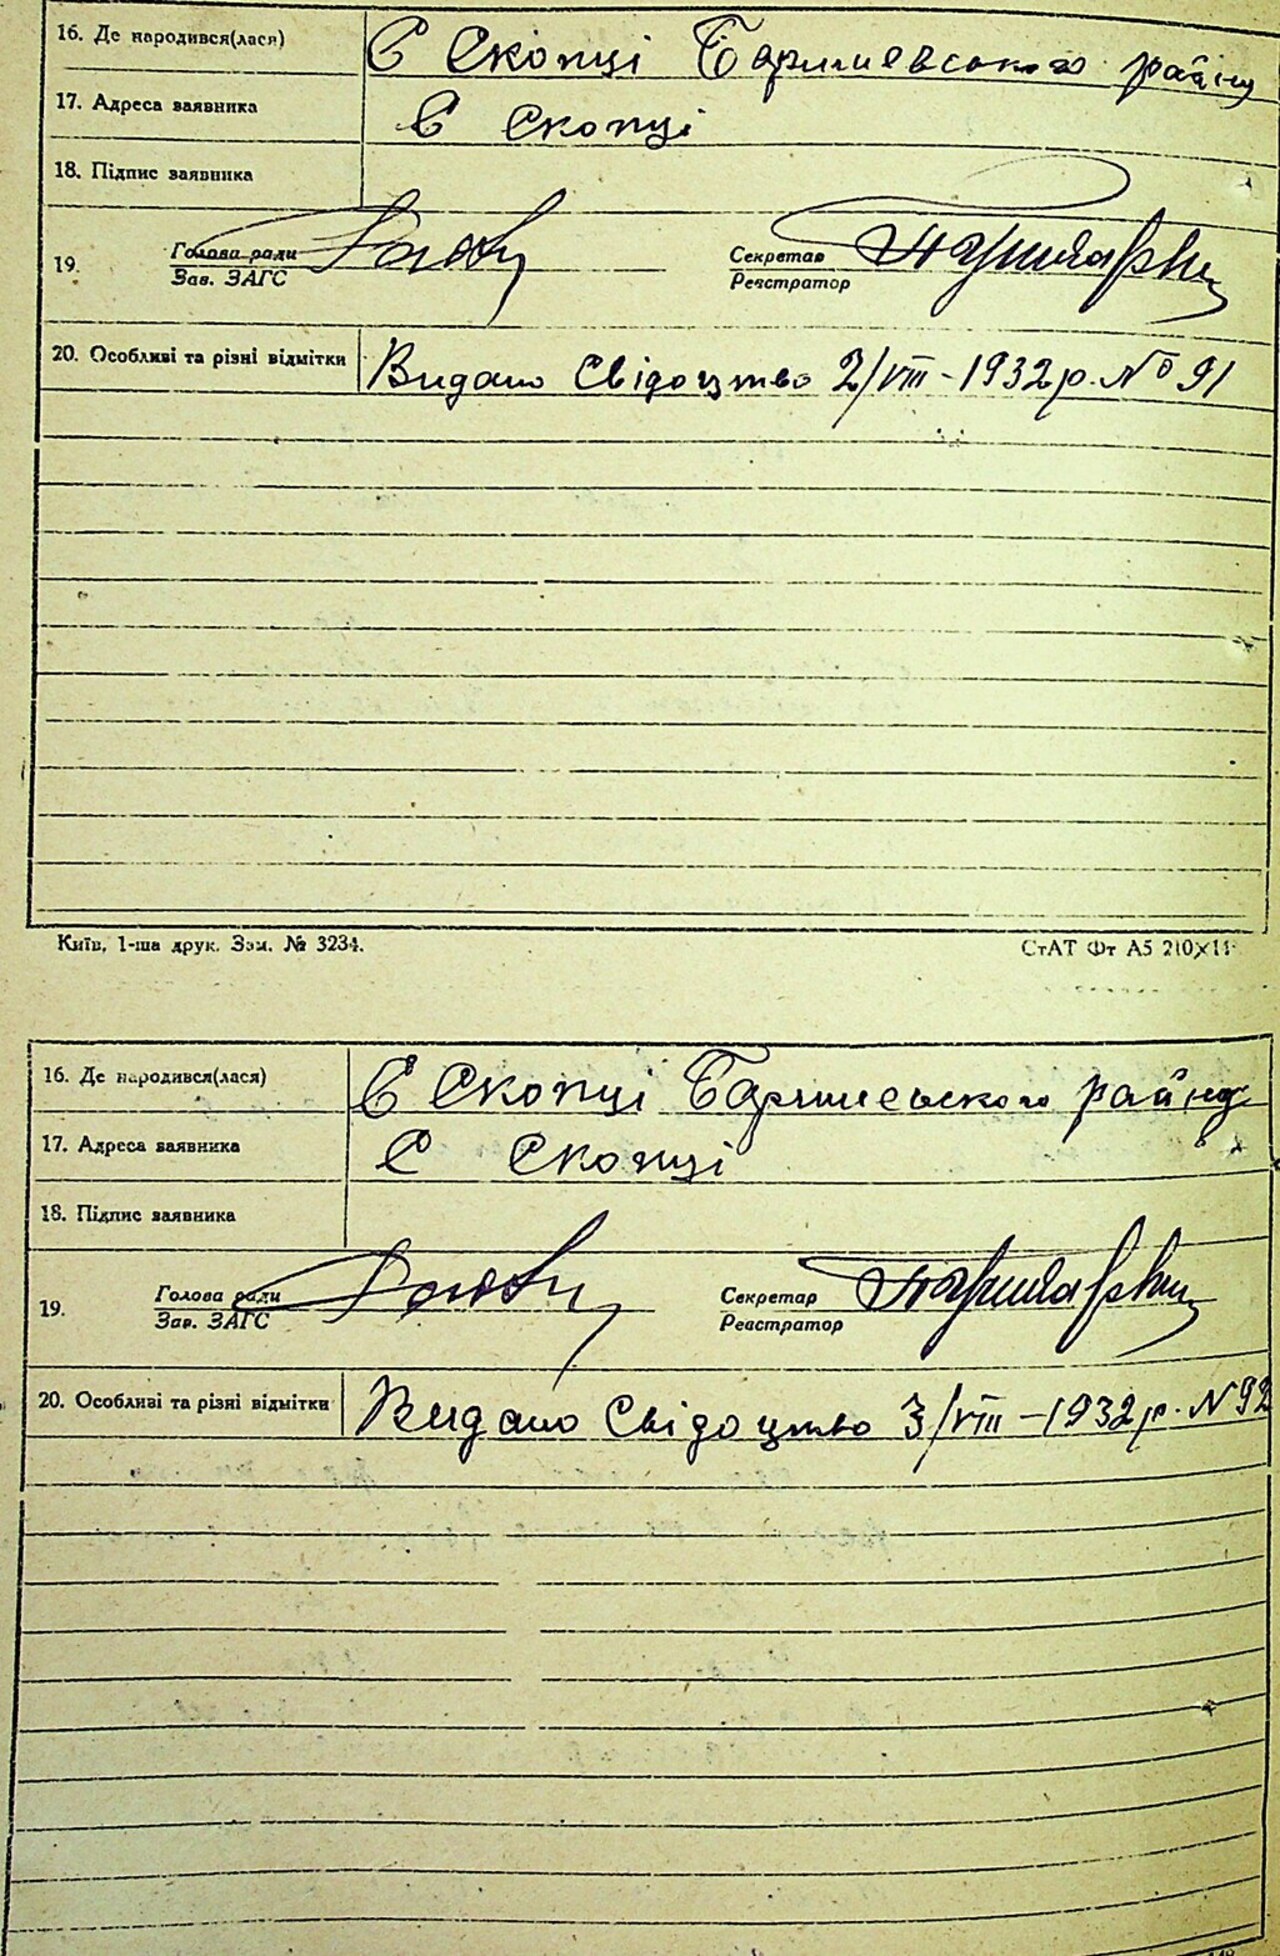 16. Де народився(лася) С Скопці Баришевського району
17. Адреса заявника С Скопці
18. Підпис заявника
19. Голова ради Секретар
Зав. ЗАГС Реєстратор
20. Особливі та різні відмітки Видано Свідоцтво 2/VIII-1932р. № 91
Київ, 1-ша друк. Зам. № 3234. СтАТ Фт А5 210×14
16. Де народився(лася) С Скопці Баришевського району
17. Адреса заявника С Скопці
18. Підпис заявника
19. Голова ради Секретар
Зав. ЗАГС Реєстратор
20. Особливі та різні відмітки Видано Свідоцтво 3/VIII-1932р. N 92